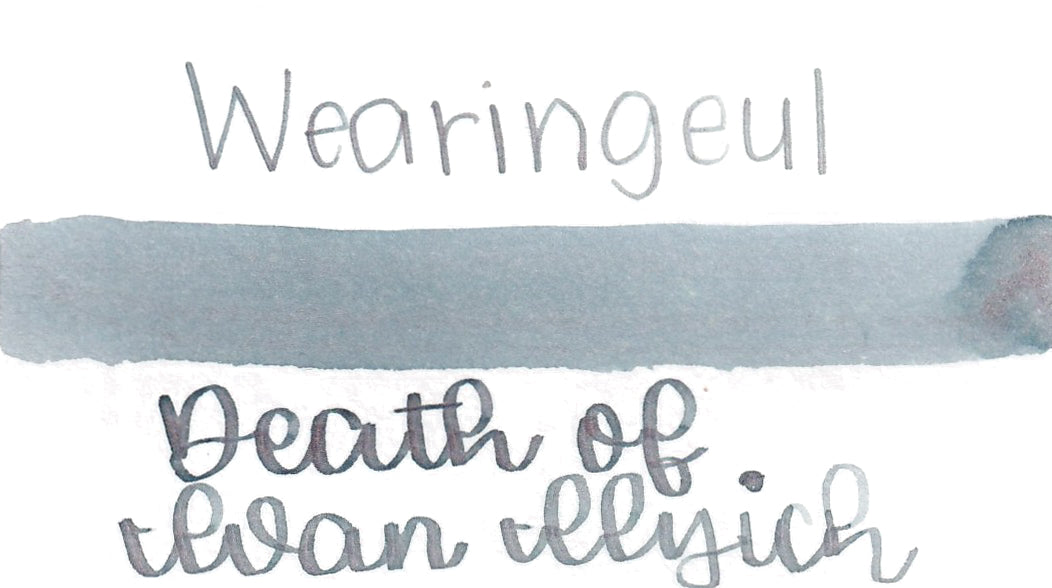 Wearingeul
Death of
Ivan Illyich